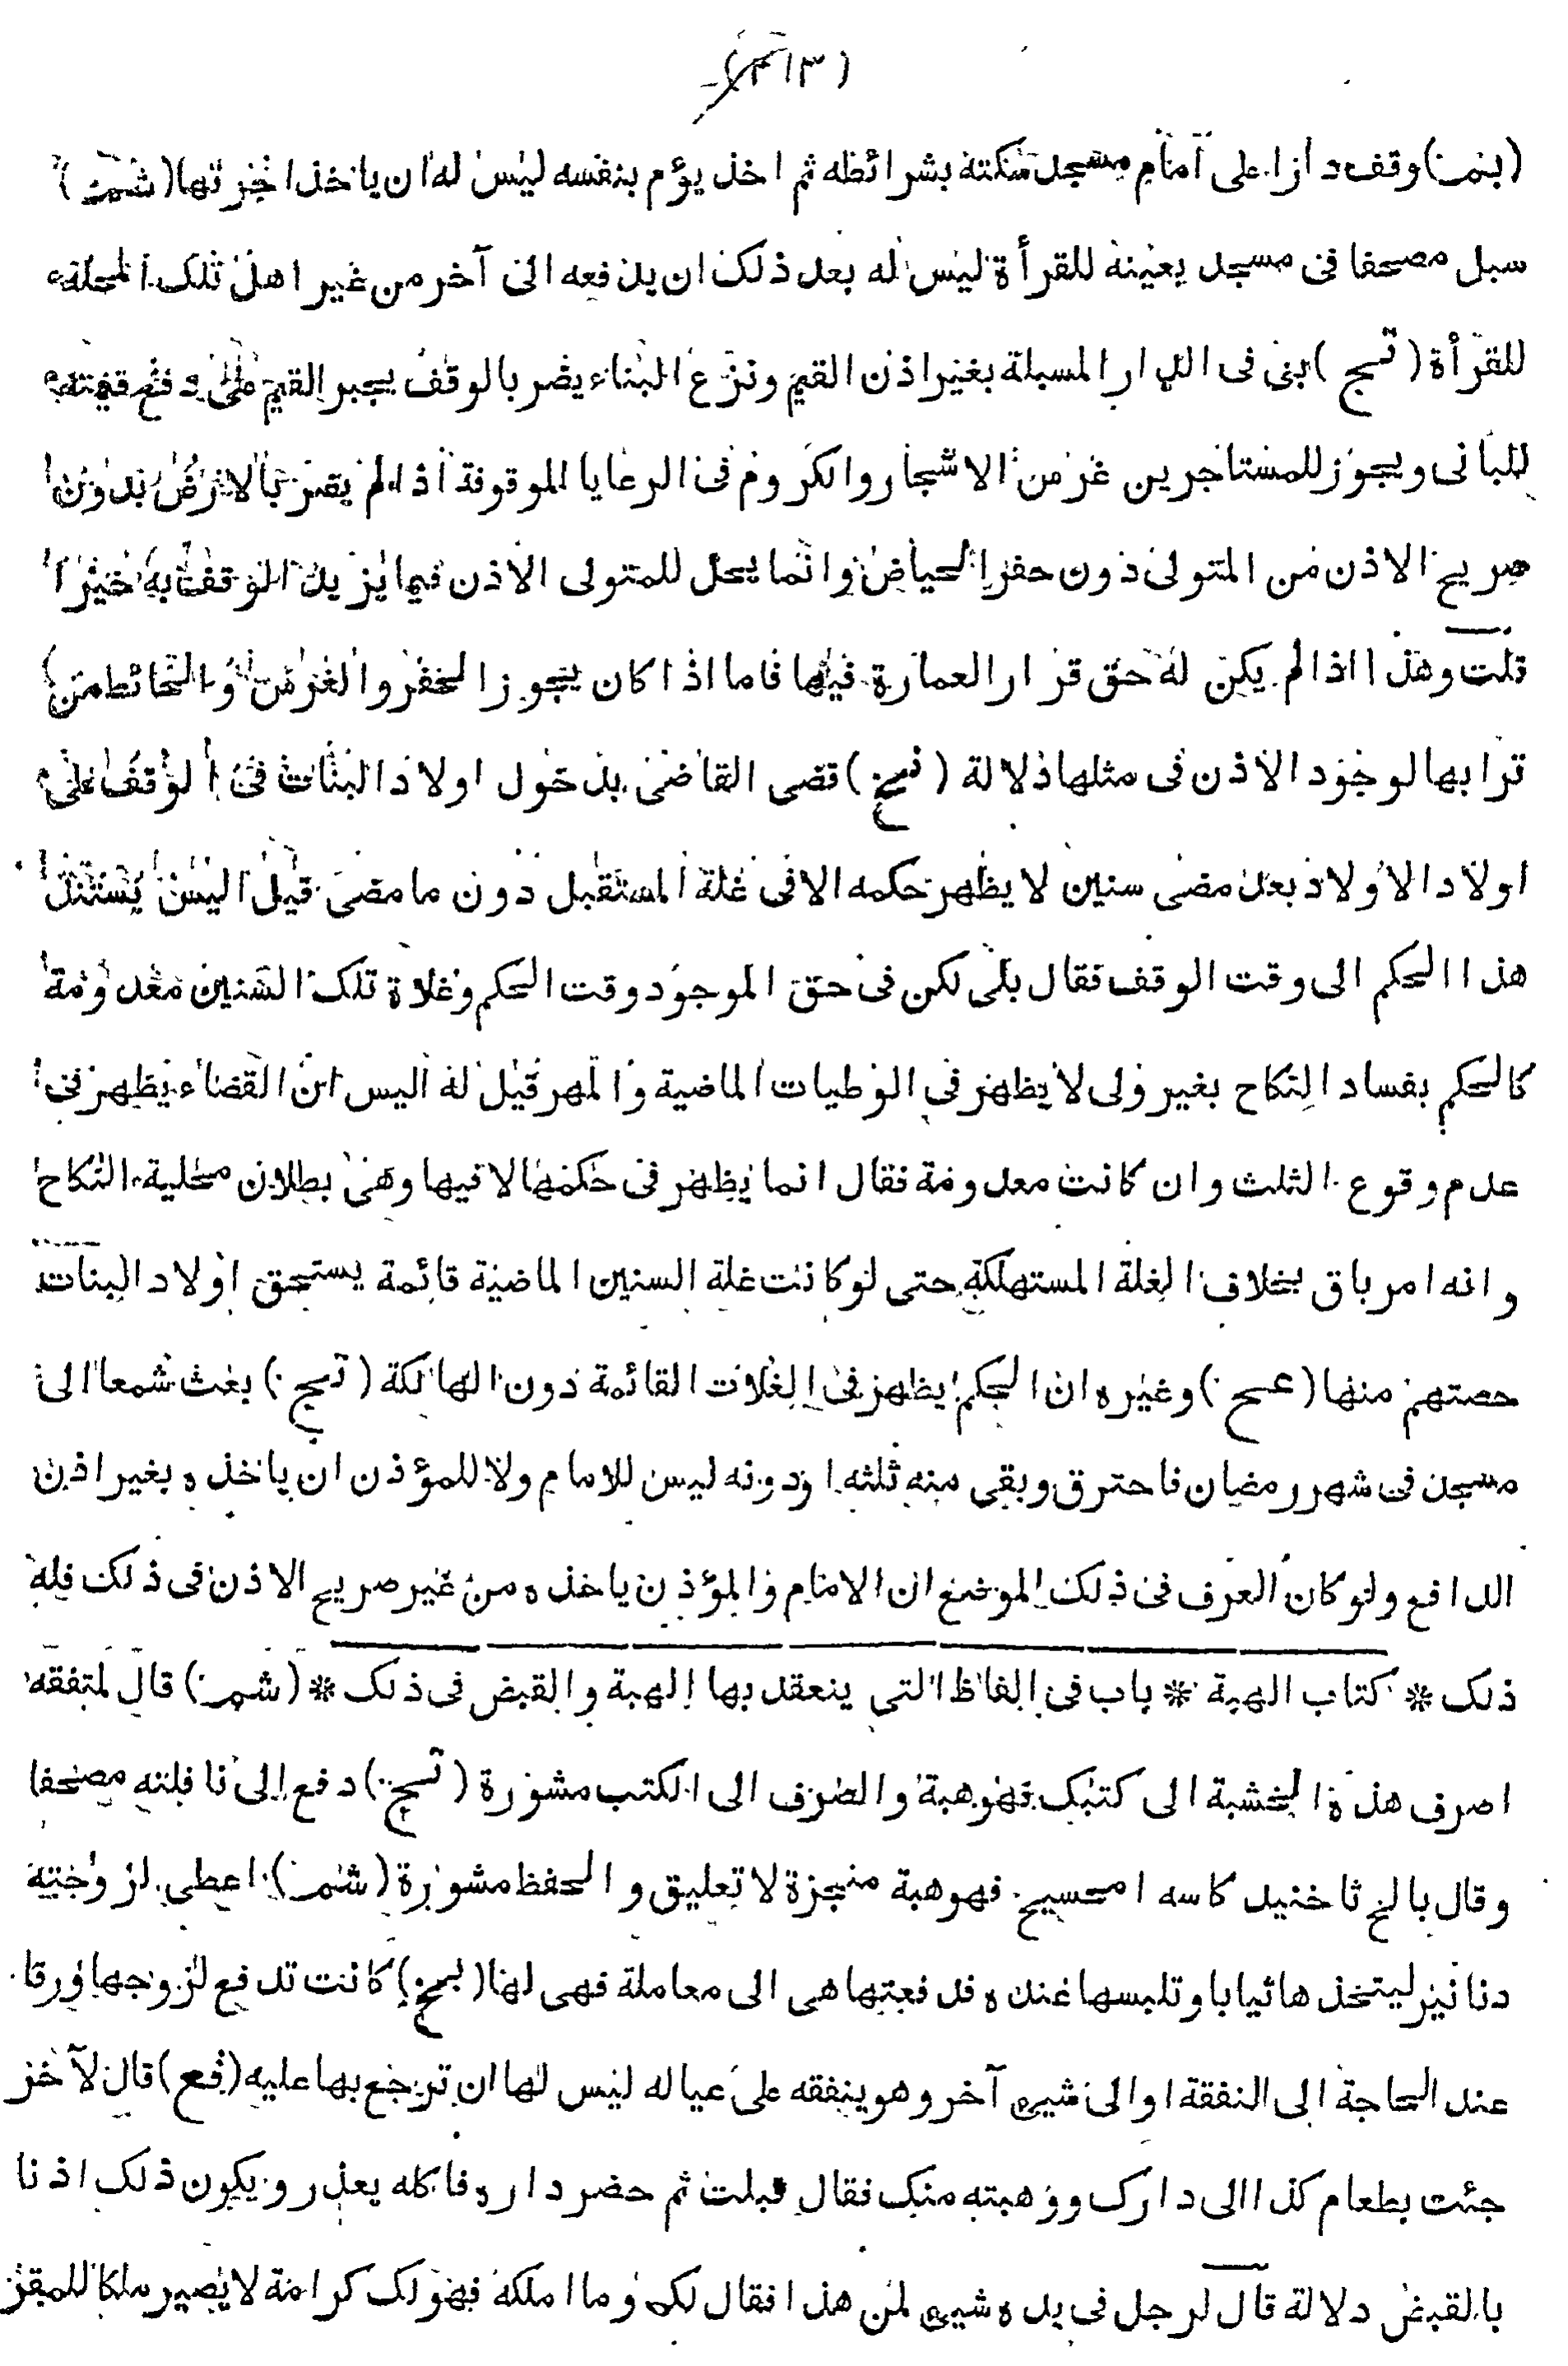 (٢١٣)
(بنم) وقف دارا على امام مسجد سكته بشرائطه ثم اخذ يؤم بنفسه ليس له ان ياخذ اجرتها (شم)
سبل مصحفا فى مسجد بعينه للقرأة ليس له بعد ذلك ان يدفعه الى آخر من غير اهل تلك المحلة
للقرأة (نسج) بنى فى الدار المسبلة بغير اذن القيم ونزع البناء يضر بالوقف يجبر القيم على دفع قيمته
للبانى ويجوز للمستاجرين غرس الاشجار والكروم فى الرعايا الموقوفة اذا لم يضر بالارض بدون
صريح الاذن من المتولى دون حفر الحياض وانما يحل للمتولى الاذن فيما يزيد الوقف به خيرا
قلت وهذا اذا لم يكن له حق قرار العمارة فيها فاما اذا كان يجوز الحفر والغرس والحائط من
ترابها لوجود الاذن فى مثلها دلالة (نسج) قضى القاضى بدخول اولاد البنات فى الوقف على
اولاد الاولاد بعد مضى سنين لا يظهر حكمه الا فى غلة المستقبل دون ما مضى قيل اليس يستند
هذا الحكم الى وقت الوقف فقال بلى لكن فى حق الموجود وقت الحكم وغلاة تلك السنين معدومة
كالحكم بفساد النكاح بغير ولى لا يظهر فى الوطيات الماضية والمهر قيل له اليس ان القضاء يظهر فى
عدم وقوع الثلث وان كانت معدومة فقال انما يظهر فى حكمها لا فيها وهى بطلان محلية النكاح
وانه امر باق بخلاف الغلة المستهلكة حتى لو كانت غلة السنين الماضية قائمة يستحق اولاد البنات
حصتهم منها (عح) وغيره ان الحكم يظهر فى الغلات القائمة دون الهالكة (نسج) بعث شمعا الى
مسجد فى شهر رمضان فاحترق وبقى منه ثلثه او دونه ليس للامام ولا للمؤذن ان ياخذه بغير اذن
الدافع ولو كان العرف فى ذلك الموضع ان الامام والمؤذن ياخذه من غير صريح الاذن فى ذلك فله
ذلك * كتاب الهبة * باب فى الفاظ التى ينعقد بها الهبة والقبض فى ذلك * (شم) قال لمتفقه
اصرف هذه الخشبة الى كتبك فهو هبة والصرف الى الكتب مشورة (نسج) دفع الى نافلته مصحفا
وقال فهو هبة منجزة لا تعليق والحفظ مشورة (شم) اعطى لزوجته
دنانير ليتخذها ثيابا وتلبسها عنده فدفعتها هى الى معاملة فهى لها (بخ) كانت تدفع لزوجها ورقا
عند الحاجة الى النفقة او الى شيء آخر وهو ينفقه على عياله ليس لها ان ترجع بها عليه (فع) قال لآخر
جئت بطعام كذا الى دارك ووهبته منك فقال قبلت ثم حضر داره فاكله يعذر ويكون ذلك اذنا
بالقبض دلالة قال لرجل فى يده شيء لمن هذا فقال لك وما املكه فهو لك كرامة لا يصير ملكا للمقر